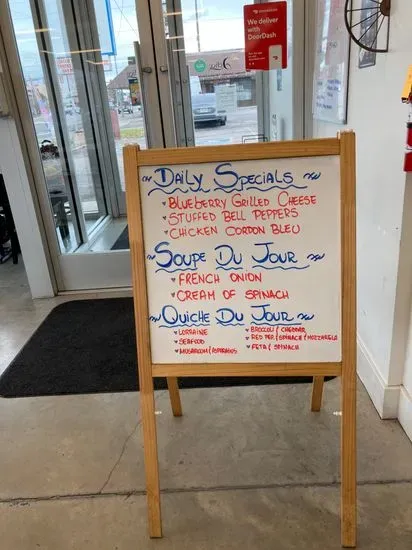 We deliver
with
DOORDASH
~ DAILY SPECIALS ~
BLUEBERRY GRILLED CHEESE
STUFFED BELL PEPPERS
CHICKEN CORDON BLEU
~ SOUPE DU JOUR ~
FRENCH ONION
CREAM OF SPINACH
~ QUICHE DU JOUR ~
LORRAINE
SEAFOOD
MUSHROOM/ASPARAGUS
BROCCOLI/CHEDDAR
RED PEP./SPINACH/MOZZARELLA
FETA/SPINACH